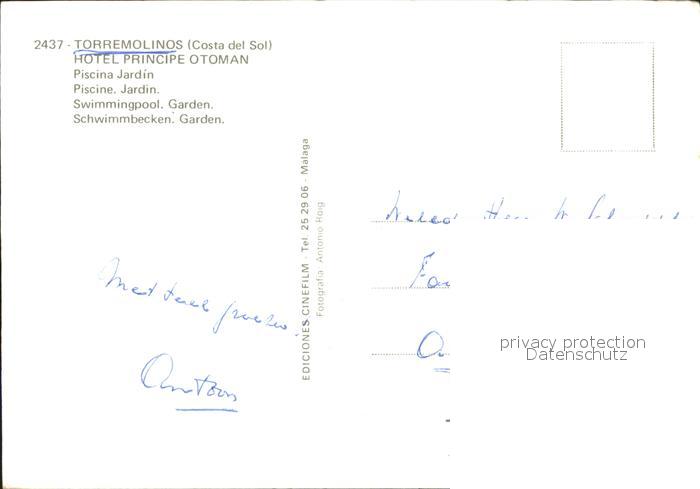 2437 - TORREMOLINOS (Costa del Sol)
HOTEL PRINCIPE OTOMAN
Piscina Jardín
Piscine. Jardin.
Swimmingpool. Garden.
Schwimmbecken. Garden.
EDICIONES CINEFILM - Tel. 25 29 06 - Malaga
Fotografía Antonio Roig
Met
Antoon
privacy protection
Datenschutz